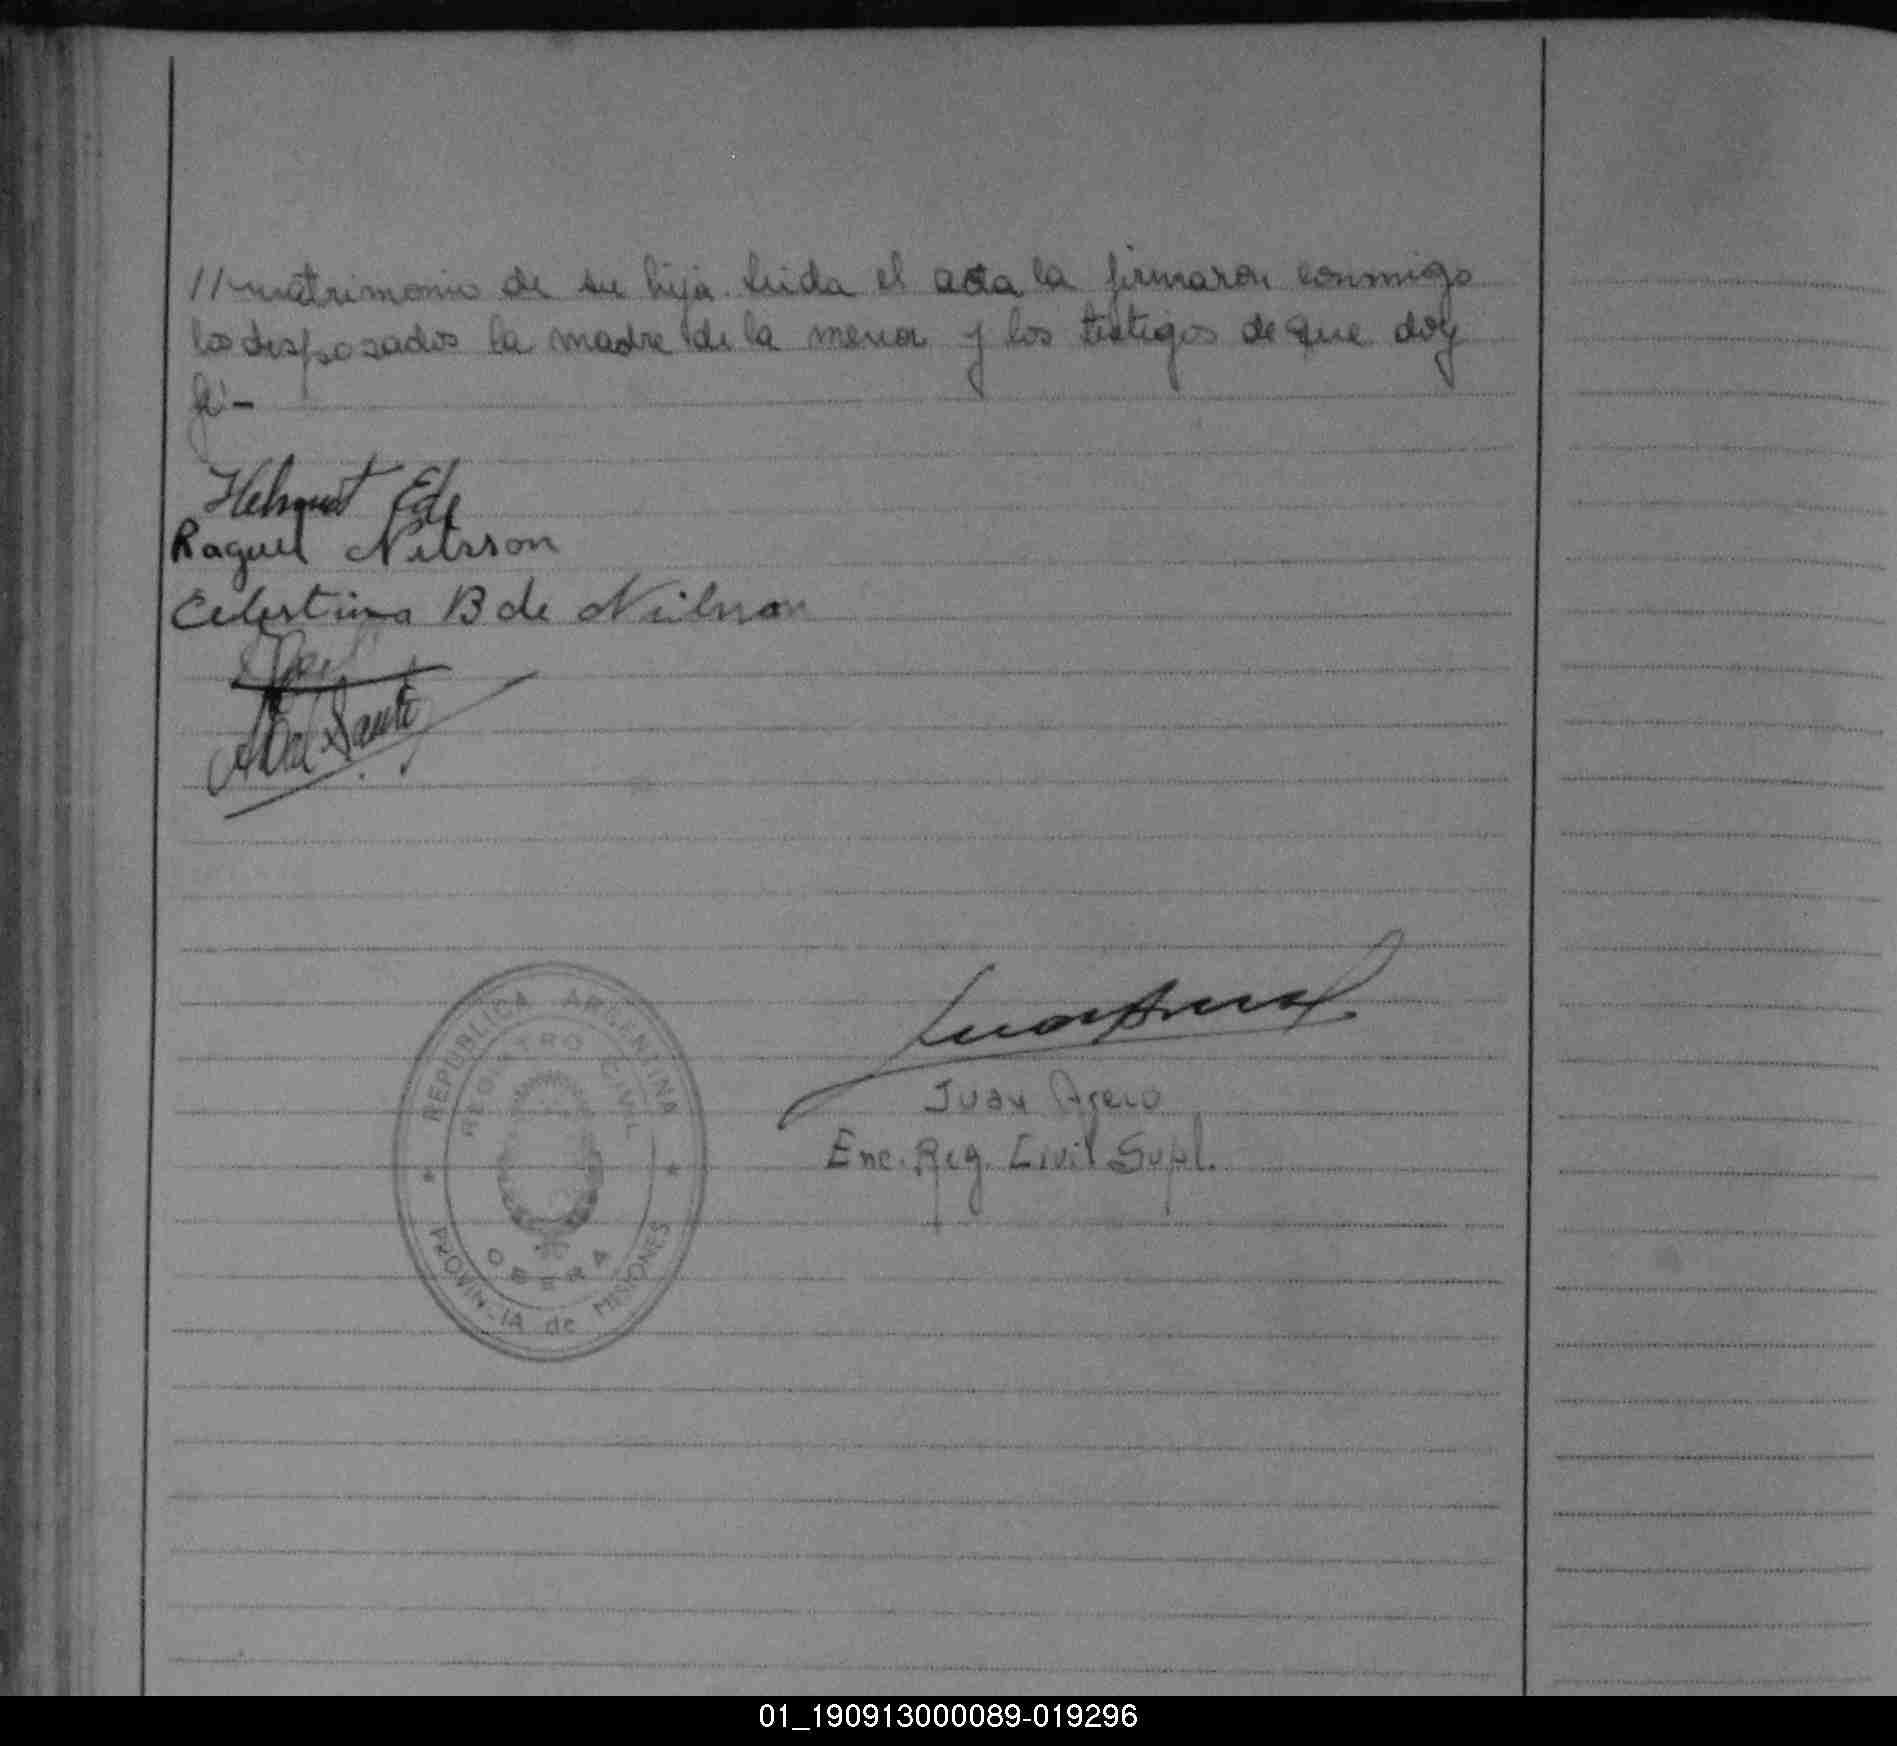 //matrimonio de su hija. leida el acta la firmaron conmigo
los desposados la madre de la menor y los testigos de que doy
fé-
Helmut Ede
Raquel Nilsson
Celestina B de Nilsson
Juan Agero
Enc. Reg. Civil Supl.
REPUBLICA ARGENTINA
REGISTRO CIVIL
OBERA
PROVINCIA de MISIONES
01_190913000089-019296